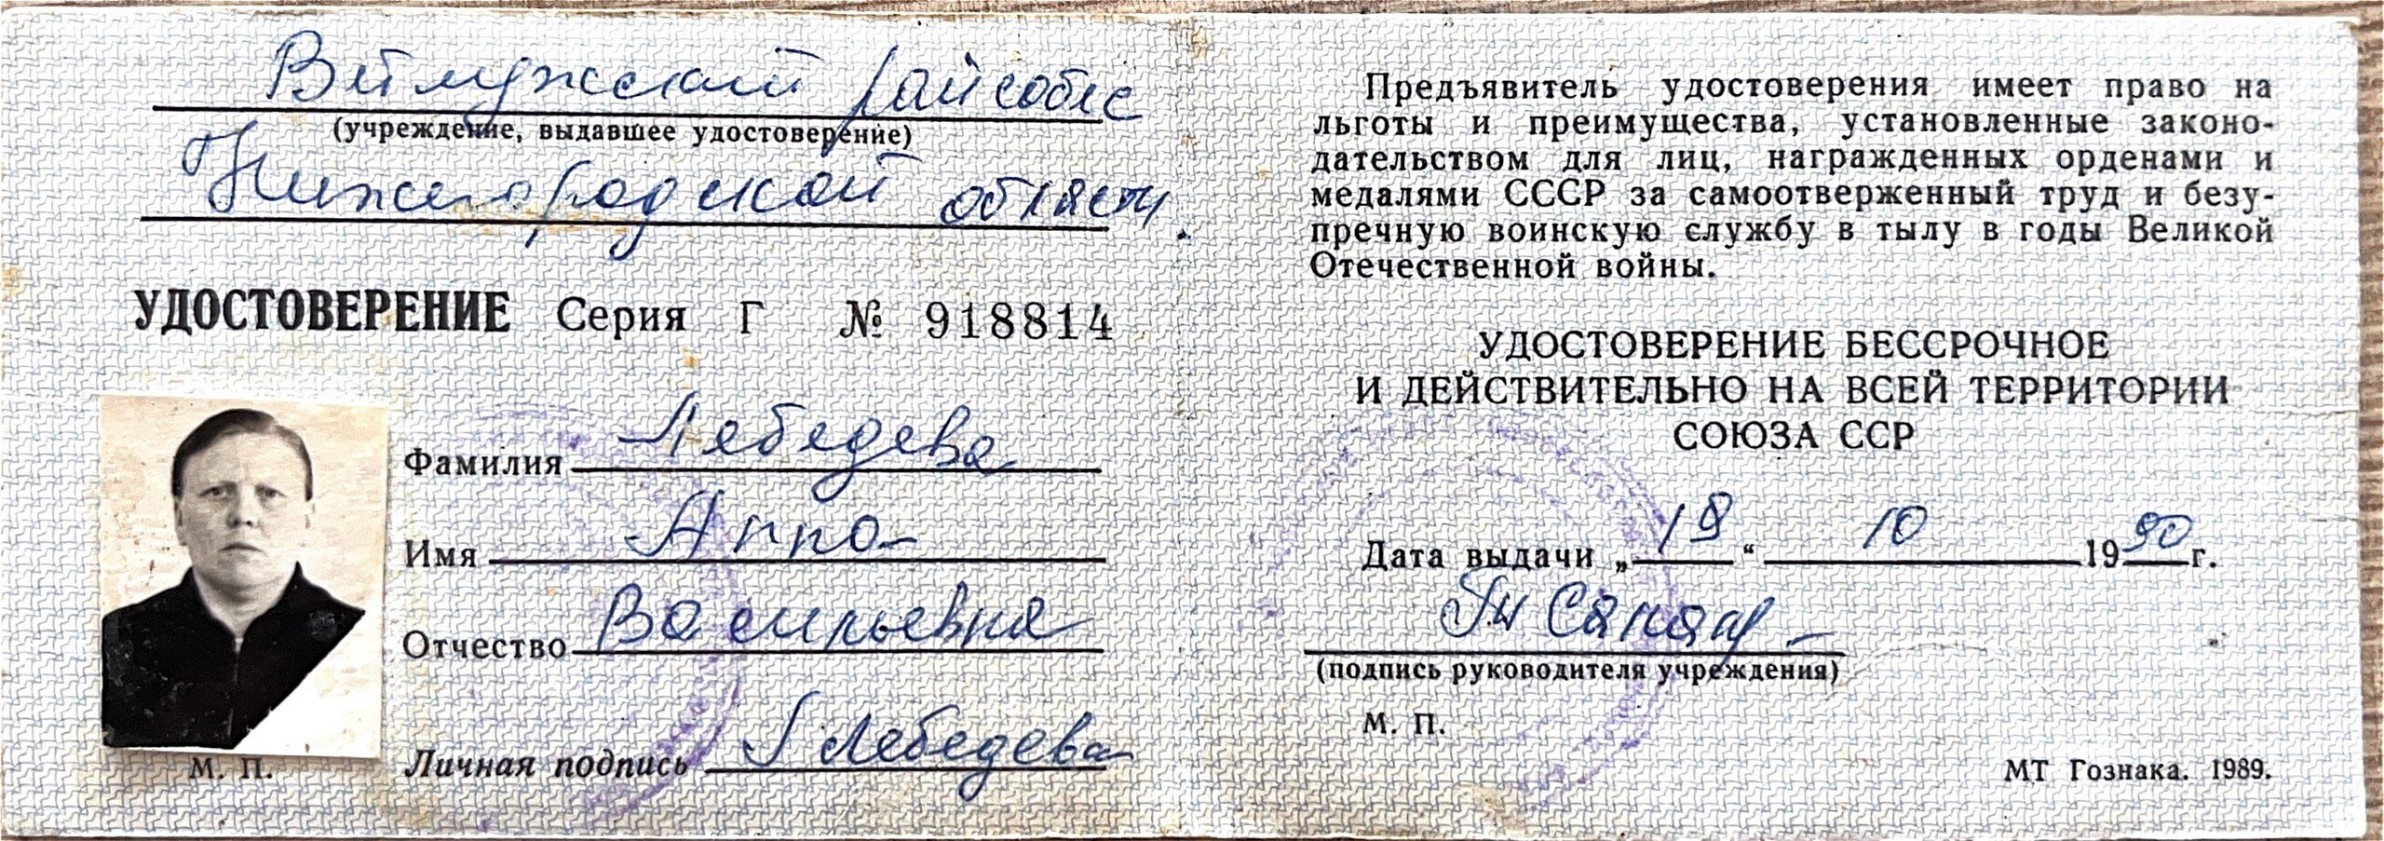 Ветлужский райсобес
(учреждение, выдавшее удостоверение)
Нижегородской области.
УДОСТОВЕРЕНИЕ Серия Г № 918814
Фамилия Лебедева
Имя Анна
Отчество Васильевна
Личная подпись Лебедева
М. П.
Предъявитель удостоверения имеет право на
льготы и преимущества, установленные законо-
дательством для лиц, награжденных орденами и
медалями СССР за самоотверженный труд и безу-
пречную воинскую службу в тылу в годы Великой
Отечественной войны.
УДОСТОВЕРЕНИЕ БЕССРОЧНОЕ
И ДЕЙСТВИТЕЛЬНО НА ВСЕЙ ТЕРРИТОРИИ
СОЮЗА ССР
Дата выдачи „19“ 10 1990 г.
(подпись руководителя учреждения)
М. П.
МТ Гознака. 1989.